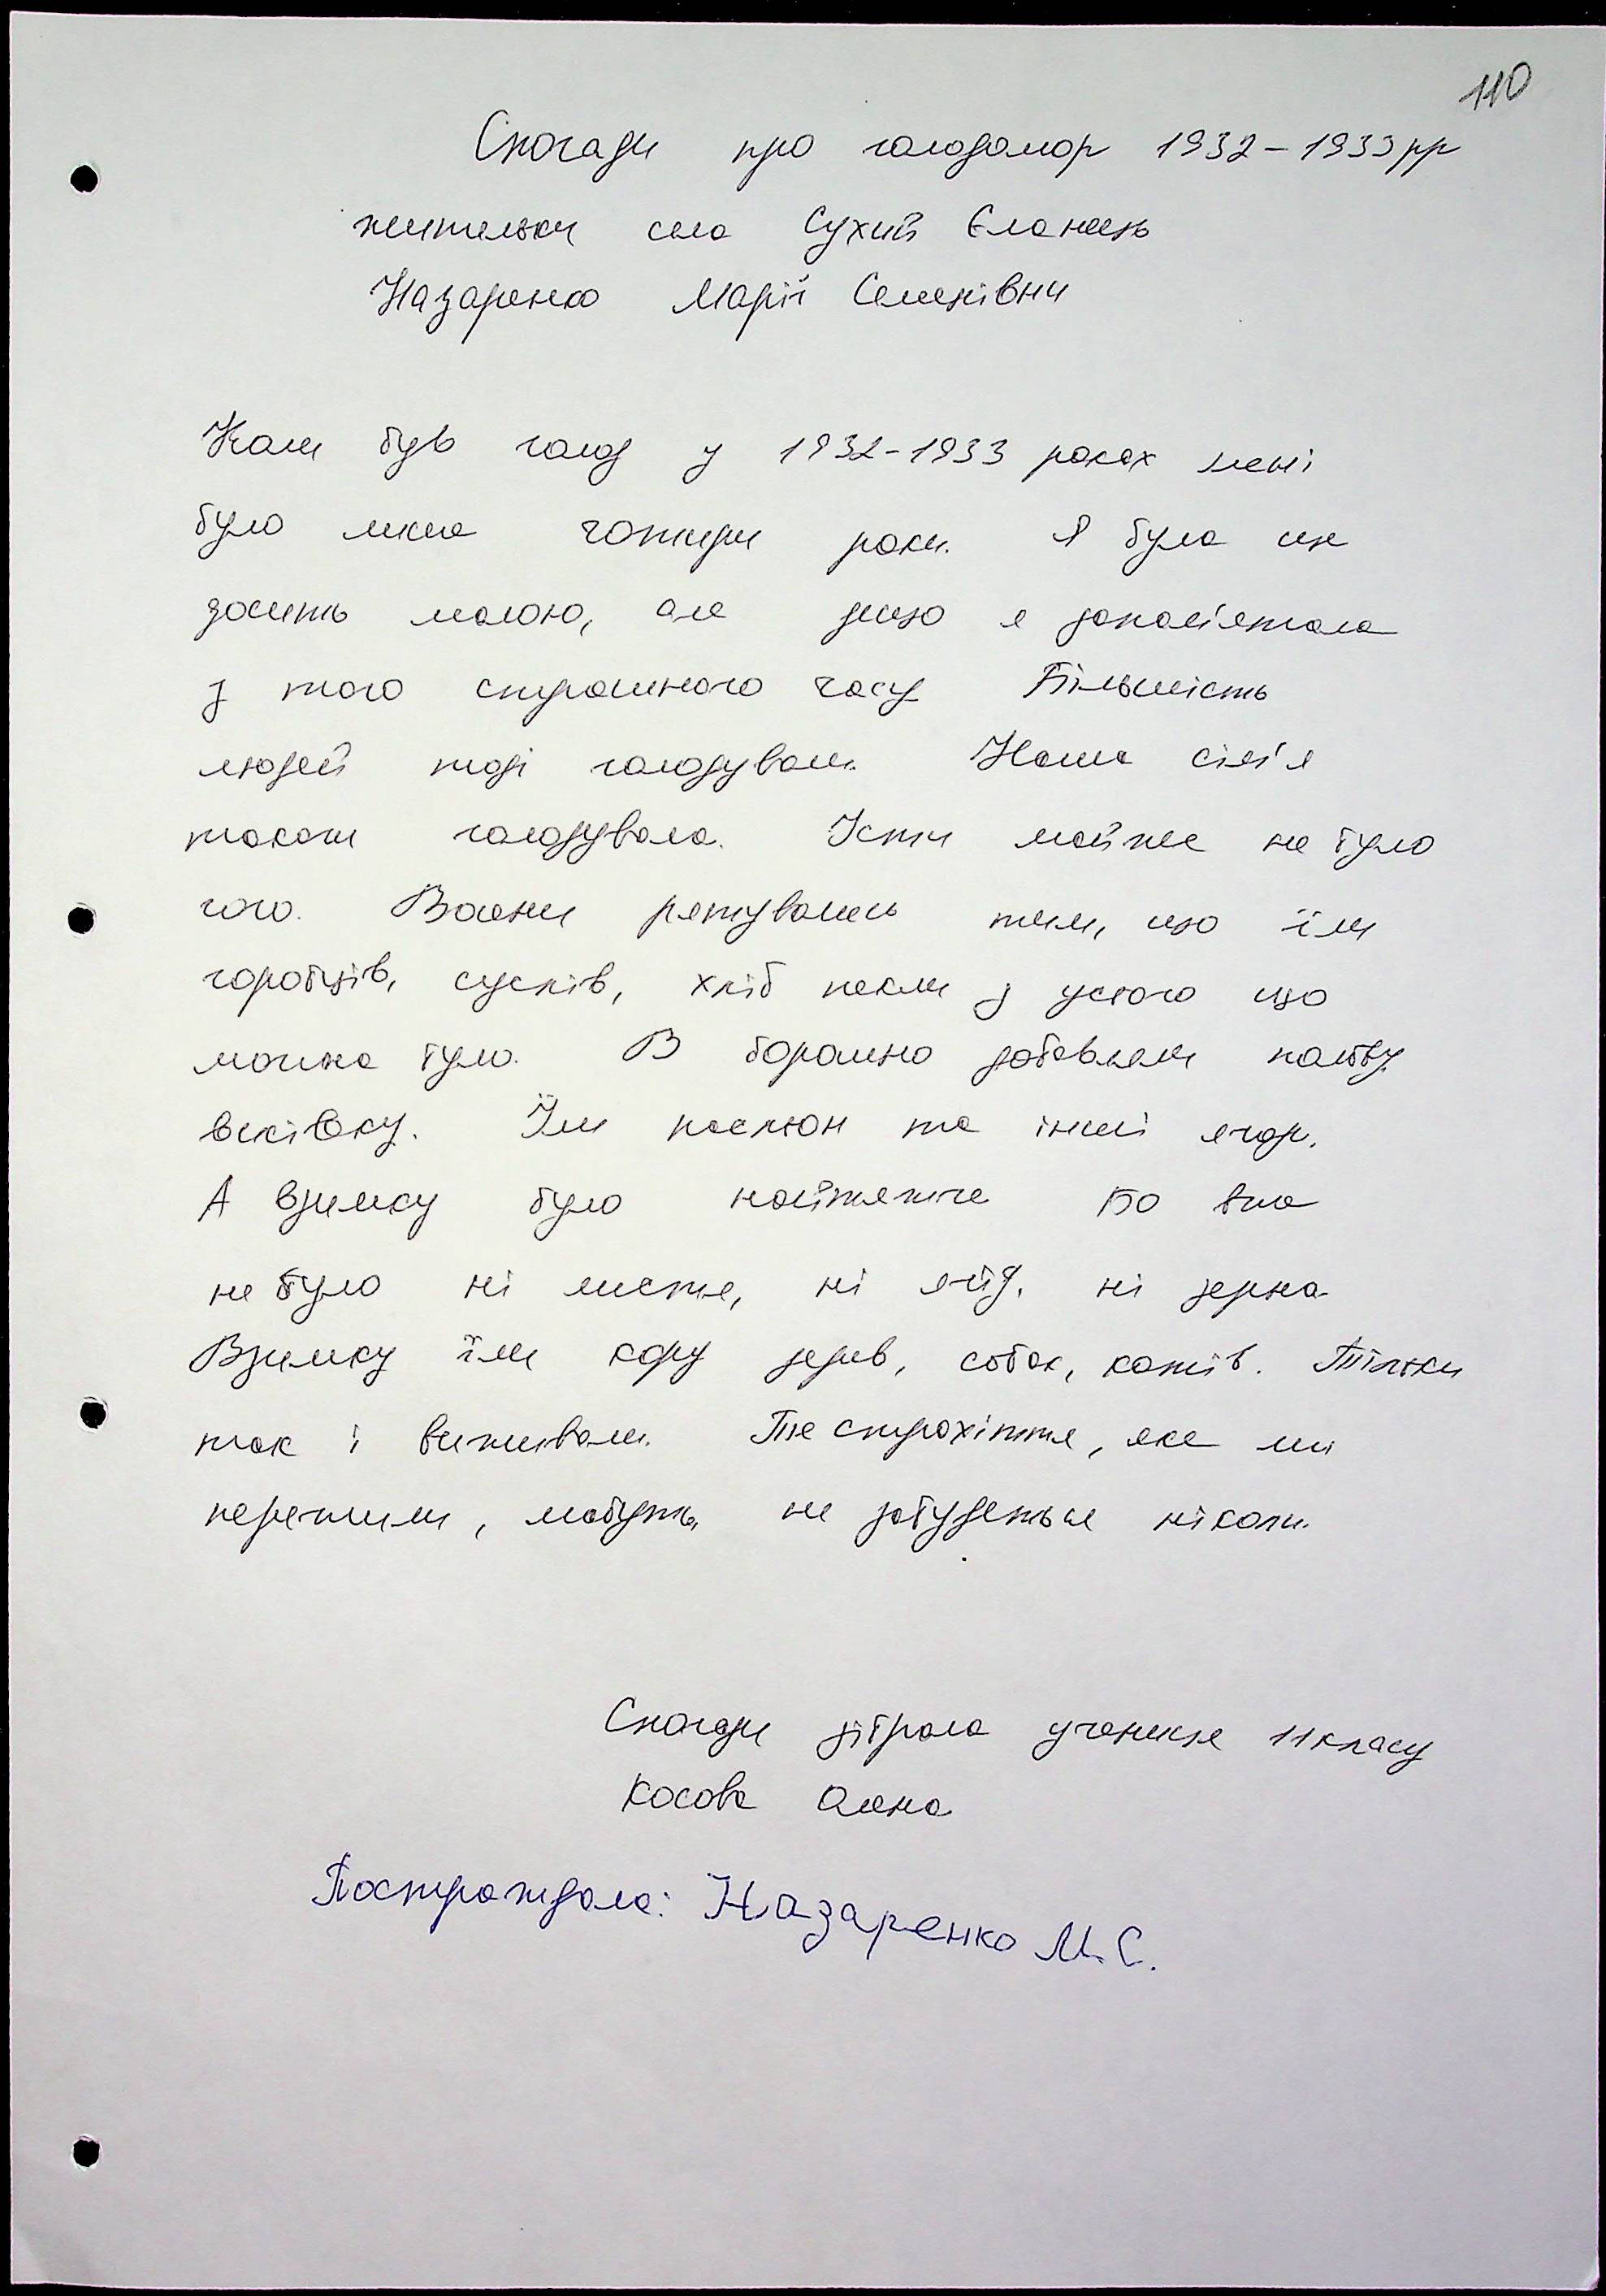 110
Спогади про голодомор 1932-1933рр
жительки села Сухий Єланець
Назаренко Марії Семенівни
Коли був голод у 1932-1933 роках мені
було лише чотири роки. Я була ще
досить малою, але дещо я запам'ятала
з того страшного часу Більшість
людей тоді голодували. Наша сім'я
також голодувала. Їсти майже не було
чого. Восени рятувались тим, що їли
горобців, сусліків, хліб пекли з усього що
можна було. В борошно добавляли полову,
висівку. Їли паслюн та інші ягоди.
А взимку було найтяжче Бо вже
не було ні листя, ні ягід, ні зерна
Взимку їли кору дерев, собак, котів. Тільки
так і виживали. Те страхіття, яке ми
пережили, мабуть, не забудеться ніколи.
Спогади зібрала учениця 11 класу
Косова Олена
Постраждала: Назаренко М.С.